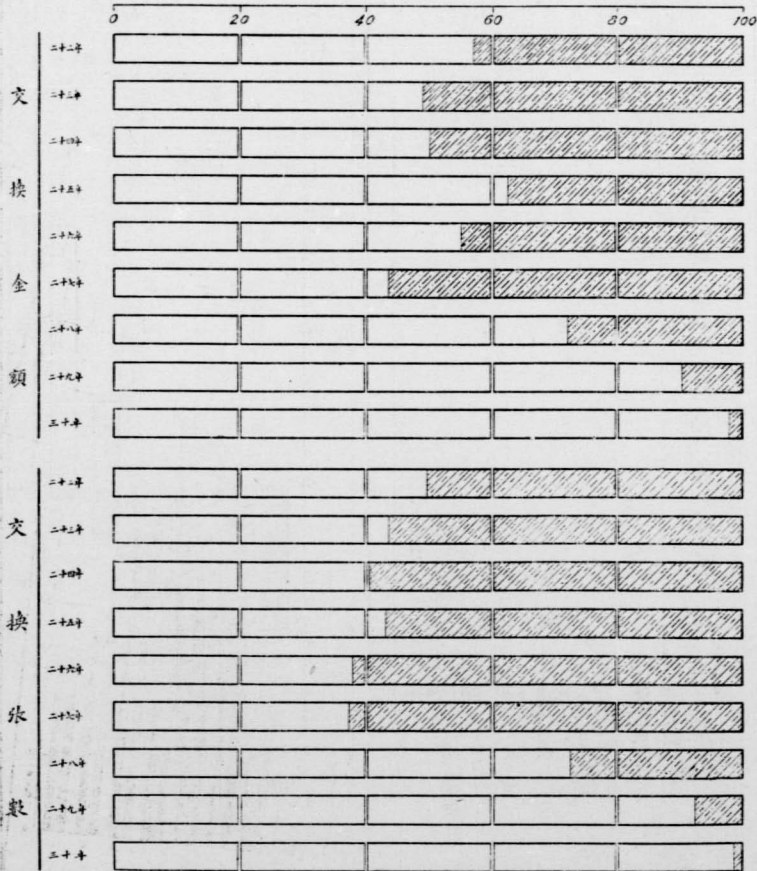 0 20 40 60 80 100
交換金額
二十二年
二十三年
二十四年
二十五年
二十六年
二十七年
二十八年
二十九年
三十年
交換張數
二十二年
二十三年
二十四年
二十五年
二十六年
二十七年
二十八年
二十九年
三十年